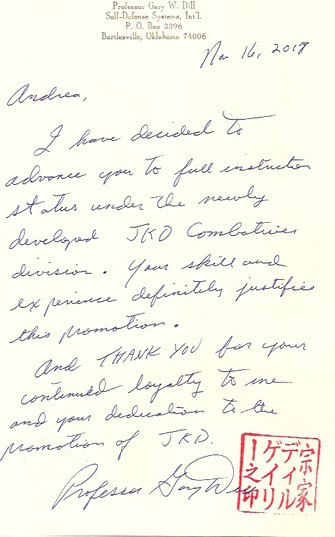 Professor Gary W. Dill
Self-Defense Systems, Int'l.
P. O. Box 3396
Bartlesville, Oklahoma 74006
Nov 16, 2017
Andrea,
I have decided to
advance you to full instructor
status under the newly
developed JKD Combatives
division. Your skill and
experience definitely justifies
this promotion.
And THANK YOU for your
continued loyalty to me
and your dedication to the
promotion of JKD.
Professor Gary Dill
宗家
ディル
ゲイリ
ー之印